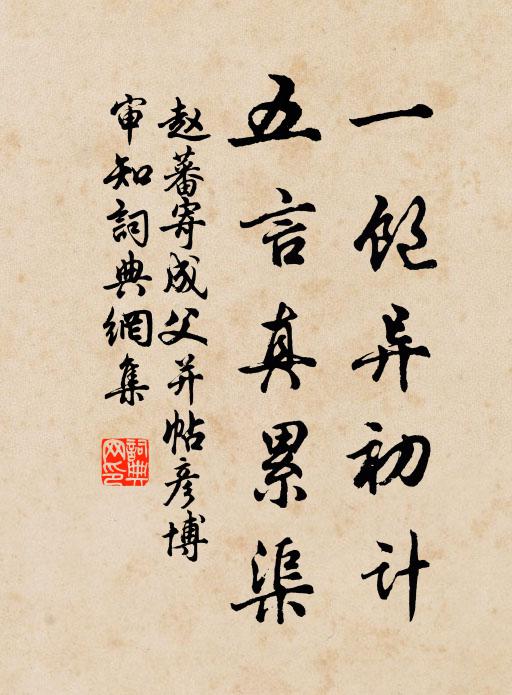 一饱异初计
五言真累渠
赵蕃寄成父并帖彦博
审知詞典網集
詞典
网印